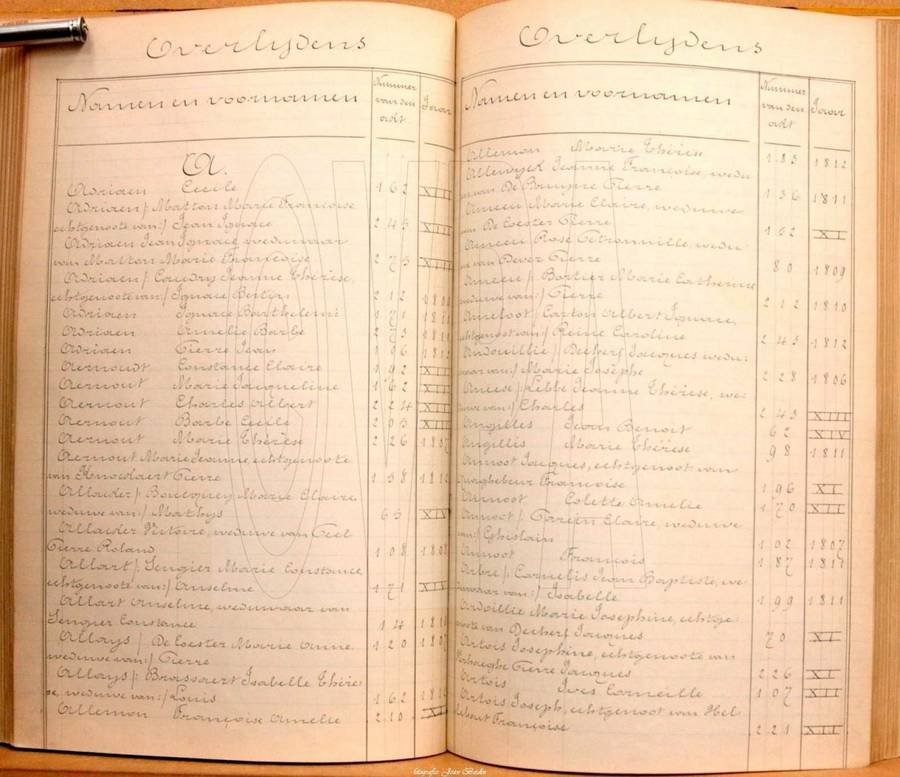 Overlydens
Namen en voornamen
Nummer van den akt
Jaar
A.
Adriaen Cecile 162 XII
Adriaen /: Matton Marie Françoise
echtgenoote van :/ Jean Ignace 245 XIII
Adriaen Jean Ignace, weduwaar
van Matton Marie Françoise 275 XIII
Adriaen /: Jeanne Thérèse,
echtgenoote van :/ Ignace 212
Adriaen Ignace Barthelemi 171
Adriaen Amelie Barbe
Adriaen Pierre Jean 196
Aernoudt Constance Claire 192 XII
Aernout Marie Jacqueline 162 XII
Aernout Charles Albert 224 XII
Aernout Barbe Cecile 203 XII
Aernout Marie Thérèse 226 1807
Aernout Marie Jeanne, echtgenoote
van Knockaert Pierre 138
Allaeder /: Marie Claire
weduwe van :/ Mathys 63 XIV
Allaeder Victoire, weduwe van
Pierre Roland 108 1808
Allart /: Sengier Marie Constance
echtgenoote van :/ Anselme 171 XIV
Allart Anselme, weduwaar van
Sengier Constance 14
Allays /: De Coester Marie Anne 120 1807
weduwe van :/ Pierre
Allays /: Brassaert Isabelle Thérè-
se, weduwe van :/ Louis 162
Alleman Françoise Amelie 210
Overlydens
Namen en voornamen
Nummer van den akt
Jaar
Alleman Marie Thérèse 183 1812
Jeanne Françoise, wedu-
De Bruyne Pierre 136 1811
Ameeu Marie Claire, weduwe
van De Coester Pierre 162 XI
Ameeu Rose Petronille, wedu-
we van Dever Pierre 80 1809
Ameeu /: Bortier Marie Catherine
weduwe van :/ Pierre 212 1810
Ameloot /: Carton Albert Ignace,
echtgenoot van :/ Reine Caroline 243 1812
Andouillie /: Jacques wedu-
waar van :/ Marie Josèphe 228 1806
/: Libbe Jeanne Thérèse, we-
duwe van :/ Charles 243 XIII
Angilles Jean Benoit 62 XIV
Angillis Marie Thérèse 98 1811
Annoot Jacques, echtgenoot van
Françoise 196 XI
Annoot Colette Amelie 170 XII
Annoot /: Claire, weduwe
van :/ Ghislain 102 1807
Annoot François 187 1811
Arbre /: Cornelis Jean Baptiste, we-
duwaar van :/ Isabelle 199 1811
Ardoillie Marie Josephine, echtge-
noote van Jacques 70 XI
Artois Josephine, echtgenoote van
Verhaeghe Pierre Jacques 226 XI
Artois Ives Corneille 107 XII
Artois Joseph, echtgenoot van Hel-
lebout Françoise 221 XII
fotografie Joan Badin